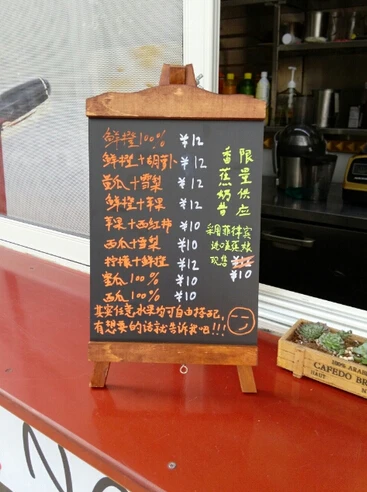 鲜橙100% ¥12
鲜橙+胡萝卜 ¥12
蜜瓜+雪梨 ¥12
鲜橙+苹果 ¥12
苹果+西红柿 ¥10
西瓜+雪梨 ¥10
柠檬+鲜橙 ¥12
蜜瓜100% ¥10
西瓜100% ¥10
其实任意水果均可自由搭配,
有想要的话就告诉我吧!!!
限量供应
香蕉奶昔
采用菲律宾
进口蕉
现售 ¥12
¥10
100% ARAB
CAFEDO BR